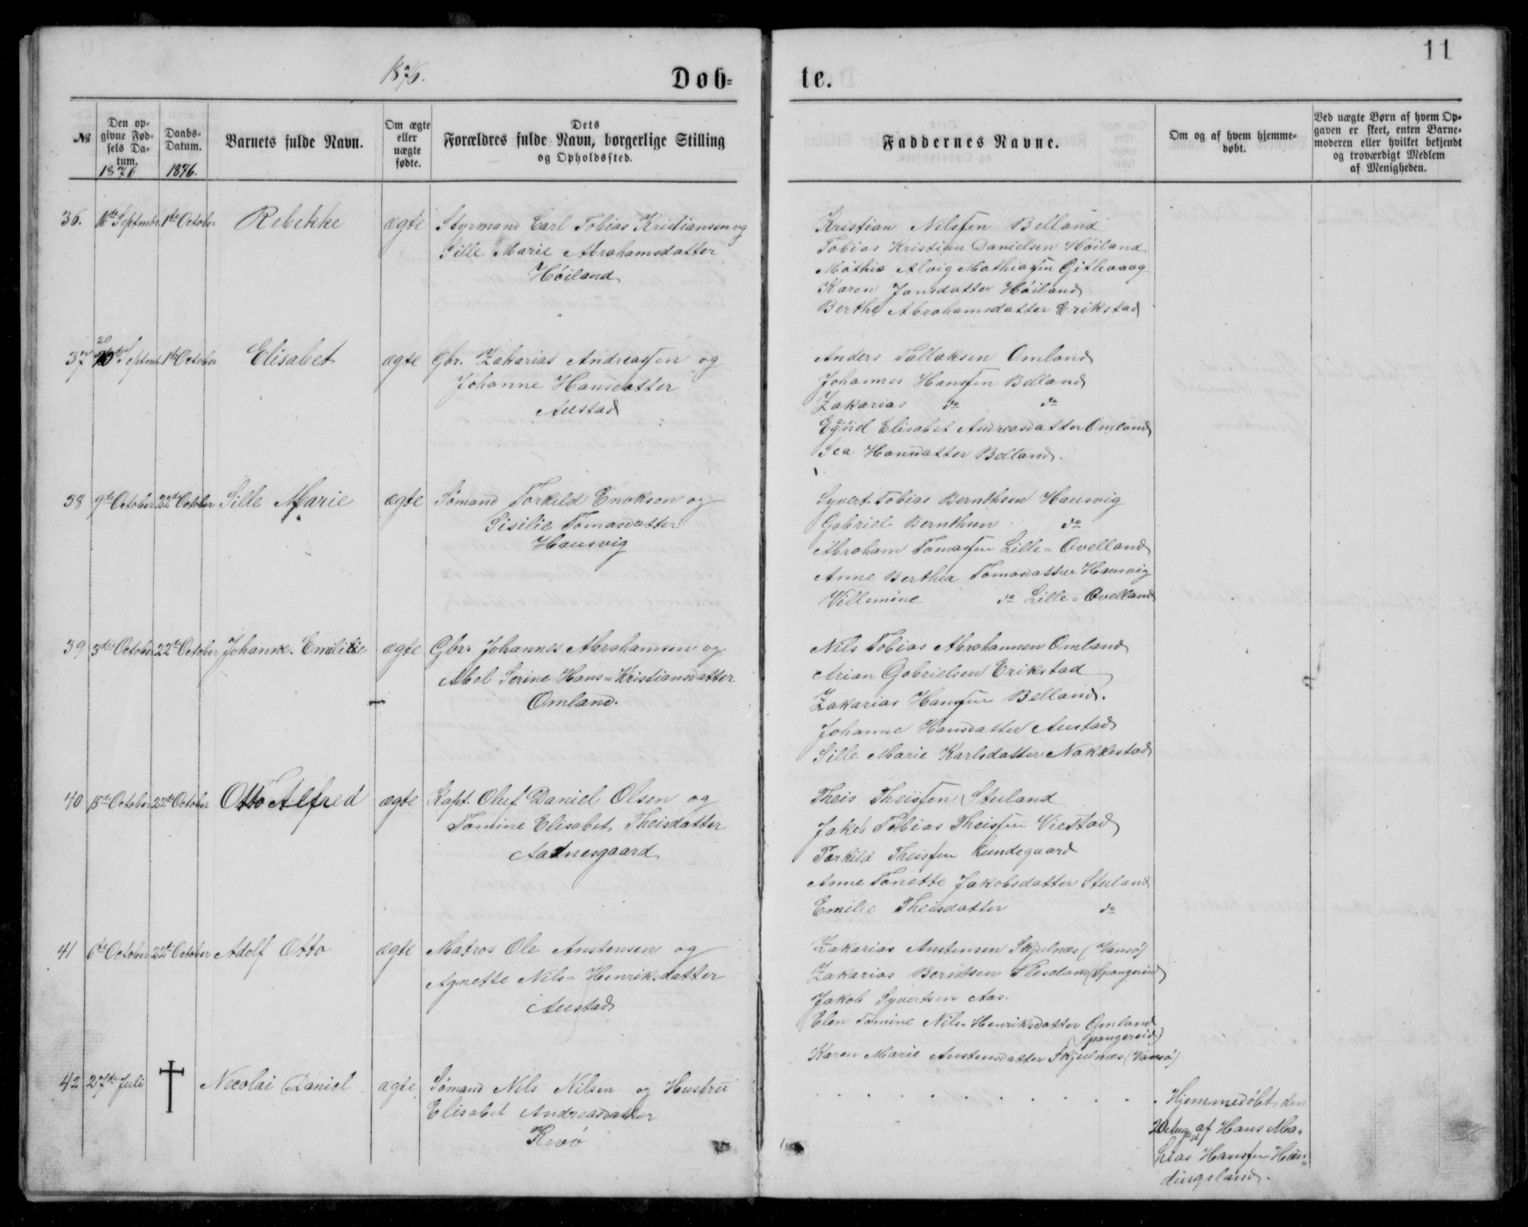 11
1876.
Døb-
te.
№
Den op-
givne Fød-
sels Da-
tum.
1876
Daabs-
Datum.
1876.
Barnets fulde Navn.
Om ægte
eller
uægte
fødte.
Dets
Forældres fulde Navn, borgerlige Stilling
og Opholdssted.
Faddernes Navne.
Om og af hvem hjemme-
døbt.
Ved uægte Børn af hvem Op-
gaven er skeet, enten Barne-
moderen eller hvilket bekjendt
og troværdigt Medlem
af Menigheden.
36. 16de Septmbr 1ste October Rebekke ægte Styrmand Carl Tobias Kristiansen og
Sille Marie Abrahamsdatter
Høiland
Kristian Nilssen Belland
Tobias Kristian Danielsen Høiland
Mathis Alvig Mathiassen Gitlevaag
Karen Jansdatter Høiland
Berthe Abrahamsdatter Erikstad
37 20 Septmr 1ste October Elisabet ægte Gbr. Zakarias Andreassen og
Johanne Hansdatter
Austad
Anders Tallaksen Omland
Johannes Hanssen Belland
Zakarias do do
Elisabet Andreasdatter Omland
Hansdatter Belland.
38 9de October 22de October Sille Marie ægte Sømand Torkild Enoksen og
Sisilie Tomasdatter
Hausvig
Syvert Tobias Bernthsen Hausvig
Gabriel Bernthsen do
Abraham Tomassen Lille-Øvelland
Anne Berthea Tomasdatter Hausvig
Villemine do Lille-Øvelland
39 3die October 22de October Johanne Emilie ægte Gbr. Johannes Abrahamsen og
Abel Serine Hans-Kristiansdatter
Omland.
Nils Tobias Abrahamsen Omland
Arian Gabrielsen Erikstad
Zakarias Hanssen Belland.
Johanne Hansdatter Austad
Sille Marie Karlsdatter Nakkestad
40 15de October 22de October Otto Alfred ægte Kapt. Oluf Daniel Olsen og
Tomine Elisabet Theisdatter
Aadnesgaard
Theis Theissen Stuland
Jakob Tobias Theissen Viestad
Torkild Theissen Lundegaard
Anne Tonette Jakobsdatter Stuland
Emilie Theisdatter do
41 6te October 22de October Adolf Otto ægte Matros Ole Anstensen og
Agnette Nils-Henriksdatter
Austad
Zakarias Anstensen Skjulnæs (Vansø)
Zakarias Berntsen (Spangereid)
Jakob Syvertsen Aas.
Elen Tomine Nils-Henriksdatter Omland
(Spangereid)
Karen Marie Anstensdatter Skjulnæs (Vansø)
42 27de Juli † Nicolai Daniel ægte Sømand Nils Nilsen og Hustru
Elisabet Andreasdatter
Revø
Hjemmedøbt den
af Hans Ma-
thias Hanssen